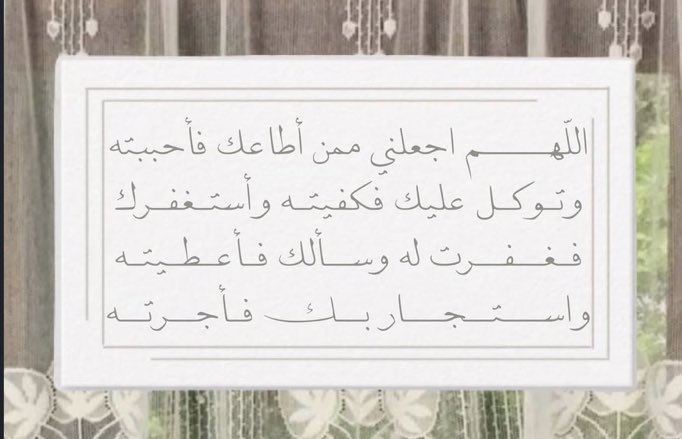 اللّهـم اجعلني ممن أطاعك فأحببته
وتـوكـل عليك فكفيتـه وأستـغفـرك
فـغـفـرت له وسـألك فـأعـطيتـه
واستـجـار بـك فـأجـرتـه